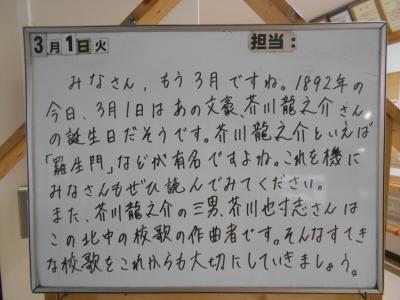 3月1日火 担当:
みなさん、もう3月ですね。1892年の
今日、3月1日はあの文豪、芥川龍之介さん
の誕生日だそうです。芥川龍之介といえば
「羅生門」などが有名ですよね。これを機に
みなさんもぜひ読んでみてください。
また、芥川龍之介の三男、芥川也寸志さんは
この北中の校歌の作曲者です。そんなすてき
な校歌をこれからも大切にしていきましょう。